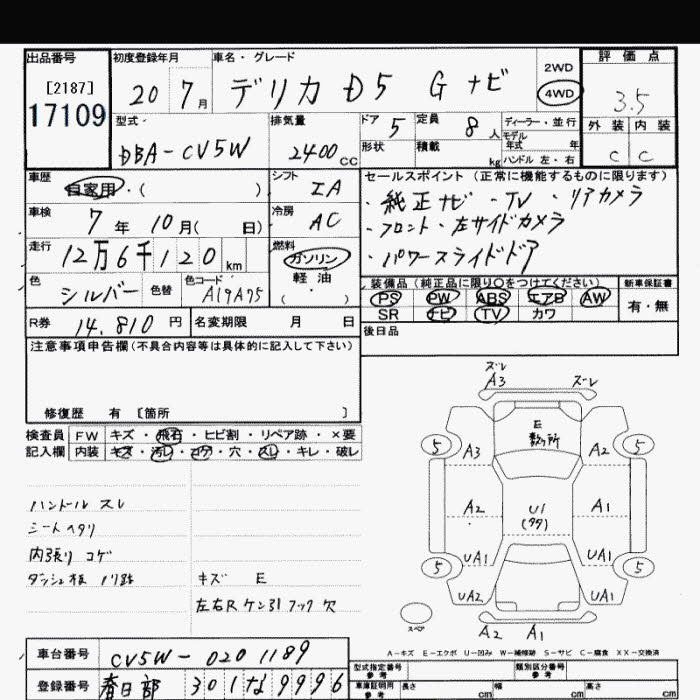 出品番号
[2187]
17109
初度登録年月
20 7月
車名・グレード
デリカ D5 G ナビ
2WD
4WD
評価点
3.5
外装 内装
C C
型式
DBA-CV5W
排気量
2400cc
ドア 5
形状
定員 8人
積載 kg
ディーラー・並行
モデル
年式 年
ハンドル 左・右
車歴
自家用・( )
シフト
IA
車検
7年 10月( 日)
冷房
AC
走行
12万6千120km
燃料
ガソリン
軽油
( )
色
シルバー
色替
色コード
A19A75
R券 14,810円
名変期限 月 日
セールスポイント(正常に機能するものに限ります)
・純正ナビ ・TV ・リアカメラ
・フロント・左サイドカメラ
・パワースライドドア
装備品(純正品に限り○をつけてください)
PS PW ABS エアB AW
SR ナビ TV カワ
新車保証書
有・無
後日品
注意事項申告欄(不具合内容等は具体的に記入して下さい)
修復歴 有 [箇所 ]
検査員
記入欄
FW キズ・飛石・ヒビ割・リペア跡・×要
内装 キズ・汚レ・コゲ・穴・スレ・キレ・破レ
ハンドル スレ
シートヘタリ
内張り コゲ
ダッシュ板 ノリ跡
キズ E
左右Rケン引フック穴
ズレ
A3
ズレ
E
数ヶ所
5 5
A3 A2
A2 U1 A1
UA1 UA1
5 5
UA2 UA1
スペア
A2 A1
A-キズ E-エクボ U-凹み W-補修跡 S-サビ C-腐食 XX-交換済
車台番号
CV5W-0201189
登録番号
春日部 301 な 9996
型式指定番号
参考
類別区分番号
参考
車庫証明用
参考
長さ cm
幅 cm
高さ cm